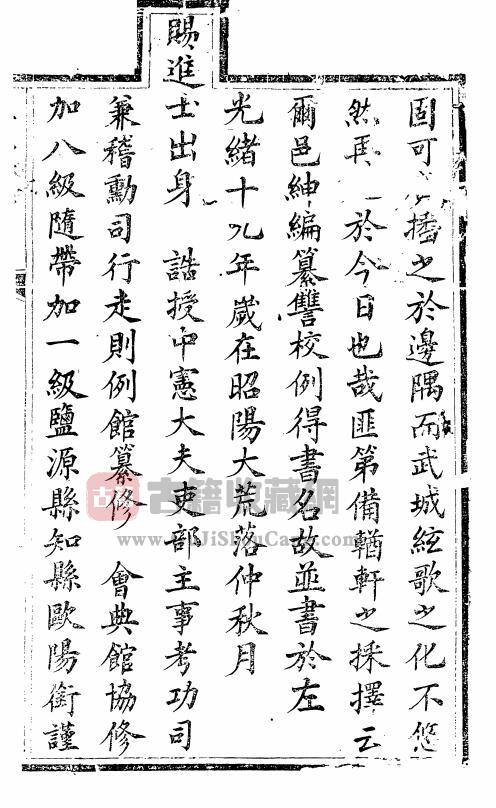 固可播之於邊隅而武城絃歌之化不悠
然再於今日也哉匪第備輶軒之採擇云
爾邑紳編纂讐校例得書名故並書於左
光緒十九年歲在昭陽大荒落仲秋月
賜進士出身 誥授中憲大夫吏部主事考功司
兼稽勳司行走則例館纂修 會典館協修
加八級隨帶加一級鹽源縣知縣歐陽銜謹
古籍收藏網
www.GuJiShouCang.com